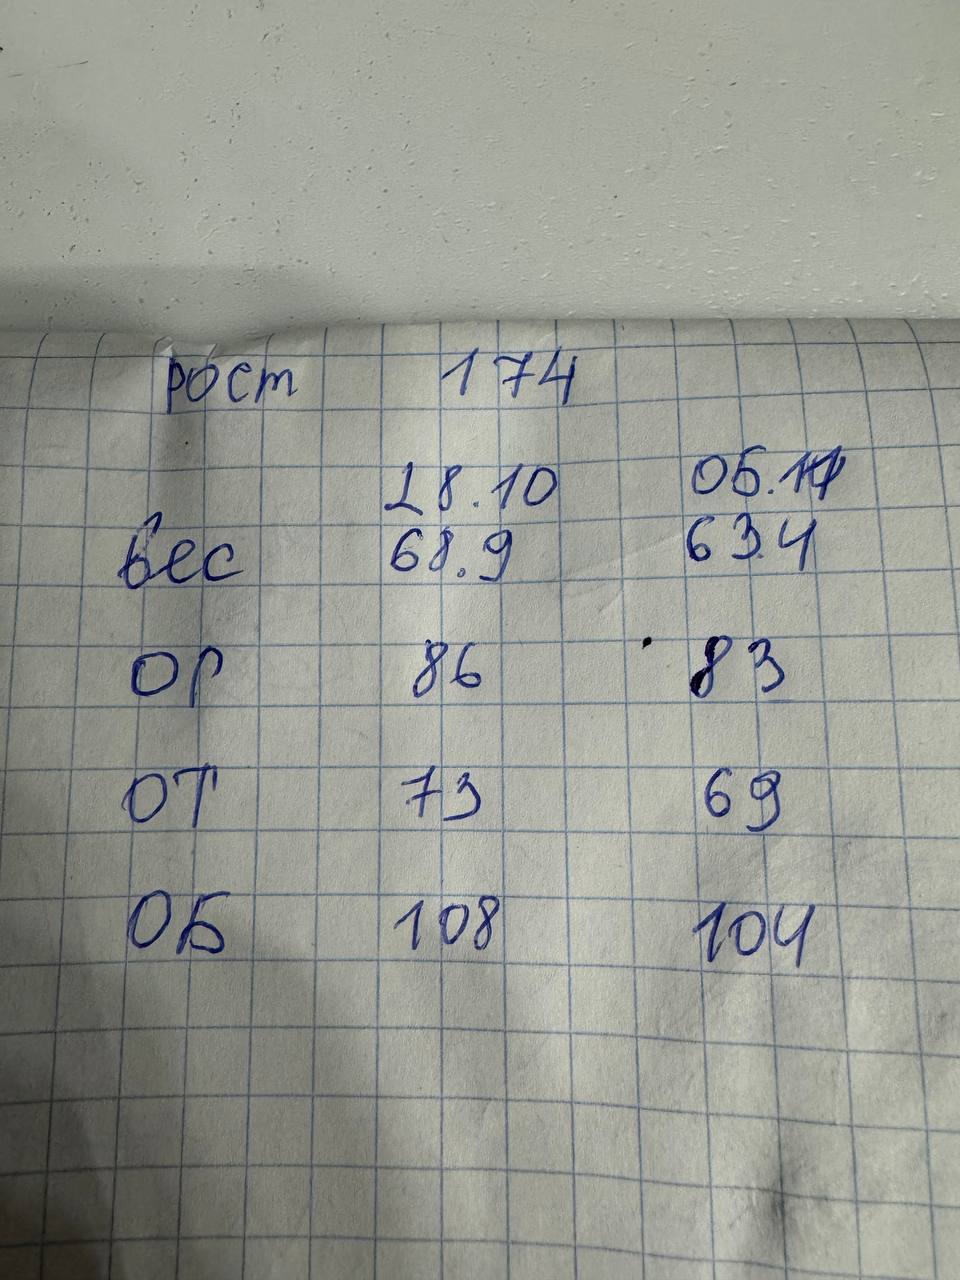 рост 174
28.10 06.11
вес 68.9 63.4
ОГ 86 83
ОТ 73 69
ОБ 108 104